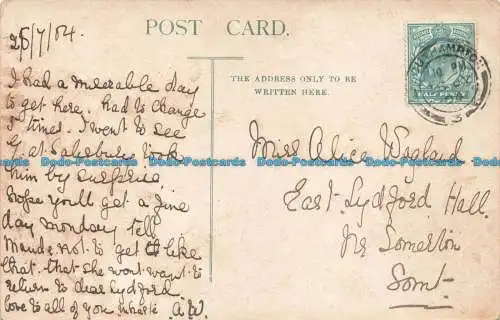 POST CARD.
25/7/04.
THE ADDRESS ONLY TO BE
WRITTEN HERE.
HALFPENNY
I had a miserable day
to get here. had to change
5 times. I went to see
at Salisbury. took
him by surprise.
Hope you'll get a fine
day monday tell
Maude not to get like
that. that she wont want to
return to dear Lydford
love to all of you. A.W.
Miss Alice Wagland
East Lydford Hall
Nr Somerton
Som-
Dodo-Postcards Dodo-Postcards Dodo-Postcards Dodo-Postcards
Dodo-Postcards Dodo-Postcards Dodo-Postcards Dodo-Postcards